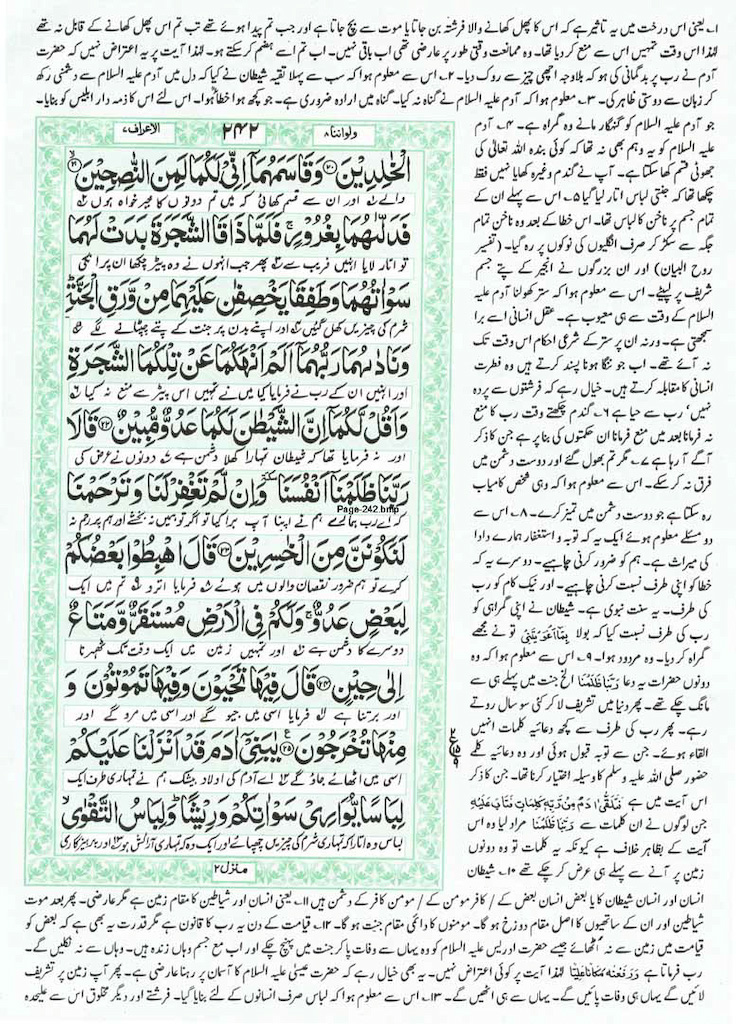 ۱؎ یعنی اس درخت میں یہ تاثیر ہے کہ اس کا پھل کھانے والا فرشتہ بن جاتا یا موت سے بچ جاتا ہے اور جب تم پیدا ہوئے تھے تب تم اس پھل کھانے کے قابل نہ تھے
لہٰذا اس وقت تمہیں اس سے منع کر دیا تھا۔ وہ ممانعت وقتی طور پر عارضی تھی اب باقی نہیں۔ اب تم اسے ہضم کر سکتے ہو۔ لہٰذا آیت پر یہ اعتراض نہیں کہ حضرت
آدم نے رب پر بدگمانی کی ہو کہ بلاوجہ اچھی چیز سے روک دیا۔ ۲؎ اس سے معلوم ہوا کہ سب سے پہلا تقیہ شیطان نے کیا کہ دل میں آدم علیہ السلام سے دشمنی رکھ
کر زبان سے دوستی ظاہر کی۔ ۳؎ معلوم ہوا کہ آدم علیہ السلام نے گناہ نہ کیا۔ گناہ میں ارادہ ضروری ہے۔ جو کچھ ہوا خطاً ہوا۔ اس لئے اس کا ذمہ دار ابلیس کو بنایا۔
جو آدم علیہ السلام کو گنہگار مانے وہ گمراہ ہے۔ ۴؎ آدم
علیہ السلام کو یہ وہم بھی نہ تھا کہ کوئی بندہ اللہ تعالٰی کی
جھوٹی قسم کھا سکتا ہے۔ آپ نے گندم وغیرہ کھایا نہیں فقط
چکھا تھا کہ جنتی لباس اتار لیا گیا ۵؎ اس سے پہلے ان کے
تمام جسم پر ناخن کا لباس تھا۔ اس خطا کے بعد وہ ناخن تمام
جگہ سے سکڑ کر صرف انگلیوں کی نوکوں پر رہ گیا۔ (تفسیر
روح البیان) اور ان بزرگوں نے انجیر کے پتے جسم
شریف پر لپیٹے۔ اس سے معلوم ہوا کہ ستر کھولنا آدم علیہ
السلام کے وقت سے ہی معیوب ہے۔ عقل انسانی اسے برا
سمجھتی ہے۔ ورنہ ان پر ستر کے شرعی احکام اس وقت تک
نہ آئے تھے۔ اب جو ننگا ہونا پسند کرتے ہیں وہ فطرت
انسانی کا مقابلہ کرتے ہیں۔ خیال رہے کہ فرشتوں سے پردہ
نہیں، رب سے حیا ہے ۶؎ گندم چکھتے وقت رب کا منع
نہ فرمانا بعد میں منع فرمانا ان حکمتوں کی بنا پر ہے جن کا ذکر
آگے آ رہا ہے ۷؎ مگر تم بھول گئے اور دوست دشمن میں
فرق نہ کر سکے۔ اس سے معلوم ہوا کہ وہی شخص کامیاب
رہ سکتا ہے جو دوست دشمن میں تمیز کرے۔ ۸؎ اس سے
دو مسئلے معلوم ہوئے ایک یہ کہ توبہ و استغفار ہمارے دادا
کی میراث ہے۔ ہم کو ضرور کرنی چاہیے۔ دوسرے یہ کہ
خطا کو اپنی طرف نسبت کرنی چاہیے۔ اور نیک کام کو رب
کی طرف۔ یہ سنت نبوی ہے۔ شیطان نے اپنی گمراہی کو
رب کی طرف نسبت کیا کہ بولا بِمَآ اَغْوَیْتَنِیْ تو نے مجھے
گمراہ کر دیا۔ وہ مردود ہوا۔ ۹؎ اس سے معلوم ہوا کہ وہ
دونوں حضرات یہ دعا رَبَّنَا ظَلَمْنَا الخ جنت میں پہلے ہی سے
مانگ چکے تھے۔ پھر دنیا میں تشریف لا کر کئی سو سال روتے
رہے۔ پھر رب کی طرف سے کچھ دعائیہ کلمات انہیں
القاء ہوئے۔ جن سے توبہ قبول ہوئی اور وہ دعائیہ کلمے
حضور صلی اللہ علیہ وسلم کا وسیلہ اختیار کرنا تھا۔ جن کا ذکر
اس آیت میں ہے فَتَلَقّٰیٓ اٰدَمُ مِنْ رَّبِّہٖ کَلِمَاتٍ فَتَابَ عَلَیْہِ
جن لوگوں نے ان کلمات سے رَبَّنَا ظَلَمْنَا مراد لیا وہ اس
آیت کے بظاہر خلاف ہے کیونکہ یہ کلمات تو وہ دونوں
زمین پر آنے سے پہلے ہی عرض کر چکے تھے ۱۰؎ شیطان
ولواننا۸
۲۴۲
الاعراف۷
الْخٰلِدِیْنَ ﴿۲۰﴾ وَقَاسَمَہُمَاۤ اِنِّیْ لَکُمَا لَمِنَ النّٰصِحِیْنَ ﴿۲۱﴾
والے اور ان سے قسم کھائی کہ میں تم دونوں کا خیر خواہ ہوں
فَدَلّٰىہُمَا بِغُرُوْرٍ ۚ فَلَمَّا ذَاقَا الشَّجَرَۃَ بَدَتْ لَہُمَا
تو اتار لایا انہیں فریب سے پھر جب انہوں نے وہ پیڑ چکھا ان پر ان کی
سَوْاٰتُہُمَا وَطَفِقَا یَخْصِفٰنِ عَلَیْہِمَا مِنْ وَّرَقِ الْجَنَّۃِ ؕ
شرم کی چیزیں کھل گئیں اور اپنے بدن پر جنت کے پتے چپٹانے لگے
وَنَادٰىہُمَا رَبُّہُمَاۤ اَلَمْ اَنْہَکُمَا عَنْ تِلْکُمَا الشَّجَرَۃِ
اور انہیں ان کے رب نے فرمایا کیا میں نے تمہیں اس پیڑ سے منع نہ کیا
وَاَقُلْ لَّکُمَاۤ اِنَّ الشَّیْطٰنَ لَکُمَا عَدُوٌّ مُّبِیْنٌ ﴿۲۲﴾ قَالَا
اور نہ فرمایا تھا کہ شیطان تمہارا کھلا دشمن ہے دونوں نے عرض کی
رَبَّنَا ظَلَمْنَاۤ اَنْفُسَنَا ٜ وَاِنْ لَّمْ تَغْفِرْ لَنَا وَتَرْحَمْنَا
Page-242.bmp
کہ اے رب ہمارے ہم نے اپنا آپ برا کیا تو اگر تو ہمیں نہ بخشے اور ہم پر رحم نہ
لَنَکُوْنَنَّ مِنَ الْخٰسِرِیْنَ ﴿۲۳﴾ قَالَ اہْبِطُوْا بَعْضُکُمْ
کرے تو ہم ضرور نقصان والوں میں ہوئے فرمایا اترو تم میں ایک
لِبَعْضٍ عَدُوٌّ ۚ وَلَکُمْ فِی الْاَرْضِ مُسْتَقَرٌّ وَّمَتَاعٌ
دوسرے کا دشمن ہے اور تمہیں زمین میں ایک وقت تک ٹھہرنا
اِلٰی حِیْنٍ ﴿۲۴﴾ قَالَ فِیْہَا تَحْیَوْنَ وَفِیْہَا تَمُوْتُوْنَ وَ
اور برتنا ہے فرمایا اسی میں جیو گے اور اسی میں مرو گے اور
مِنْہَا تُخْرَجُوْنَ ﴿۲۵﴾ یٰبَنِیْۤ اٰدَمَ قَدْ اَنْزَلْنَا عَلَیْکُمْ
اسی میں اٹھائے جاؤ گے اے آدم کی اولاد بیشک ہم نے تمہاری طرف ایک
لِبَاسًا یُّوَارِیْ سَوْاٰتِکُمْ وَرِیْشًا ؕ وَلِبَاسُ التَّقْوٰی ۙ
لباس وہ اتارا کہ تمہاری شرم کی چیزیں چھپائے اور ایک وہ کہ تمہاری آرائش ہو اور پرہیزگاری
منزل۲
انسان اور انسان شیطان کا یا بعض انسان بعض کے / کافر مومن کے / مومن کافر کے دشمن ہیں ۱۱؎ یعنی انسان اور شیاطین کا مقام زمین ہے مگر عارضی۔ پھر بعد موت
شیاطین اور ان کے ساتھیوں کا اصل مقام دوزخ ہو گا۔ مومنوں کا دائمی مقام جنت ہو گا۔ ۱۲؎ قیامت کے دن یہ رب کا قانون ہے مگر قدرت یہ بھی ہے کہ بعض کو
قیامت میں زمین سے نہ اٹھائے جیسے حضرت ادریس علیہ السلام کو وہ یہاں سے وفات پا کر جنت میں پہنچ چکے اور اب مع جسم وہاں زندہ ہیں۔ وہاں سے نہ نکلیں گے۔
رب فرماتا ہے وَرَفَعْنٰہُ مَکَانًا عَلِیًّا لہٰذا آیت پر کوئی اعتراض نہیں۔ یہ بھی خیال رہے کہ حضرت عیسیٰ علیہ السلام کا آسمان پر رہنا عارضی ہے۔ پھر آپ زمین پر تشریف
لائیں گے یہاں ہی وفات پائیں گے۔ یہاں سے ہی اٹھیں گے۔ ۱۳؎ اس سے معلوم ہوا کہ لباس صرف انسانوں کے لئے بنایا گیا۔ فرشتے اور دیگر مخلوق اس سے علیحدہ